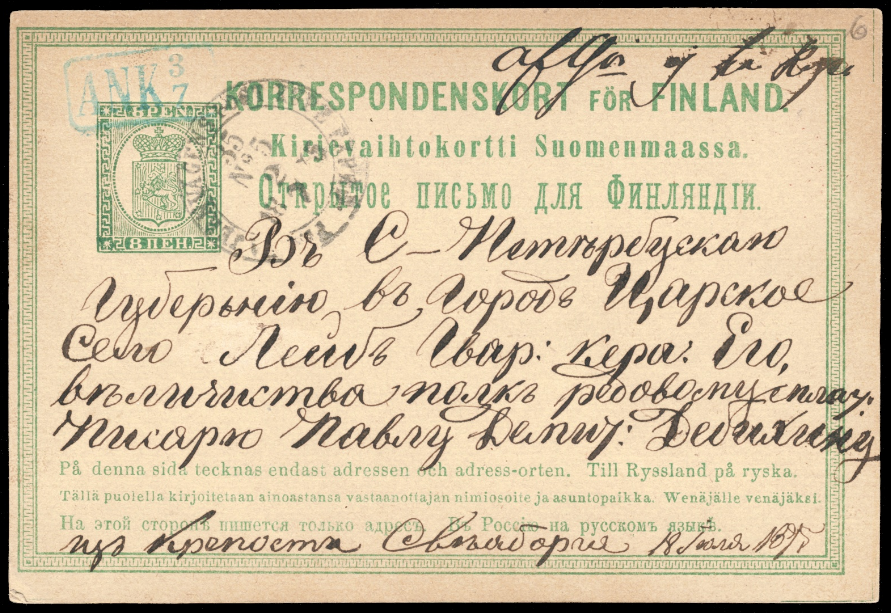 ANK 3/7
8 PEN.
8 ПЕН.
KORRESPONDENSKORT FÖR FINLAND.
Kirjevaihtokortti Suomenmaassa.
Открытое письмо для Финляндіи.
Въ С-Петѣрбускаю
Губерьнію въ Городъ Царское
Село Леибъ Гвар: кера: Его,
вѣличиства полкъ редовому
Писарю Павлу Демит:
På denna sida tecknas endast adressen och adress-orten. Till Ryssland på ryska.
Tällä puolella kirjoitetaan ainoastansa vastaanottajan nimiosoite ja asuntopaikka. Wenäjälle venäjäksi.
На этой сторонѣ пишется только адресъ. Въ Россію на русскомъ языкѣ.
изъ Крепости Свѣаборга
6